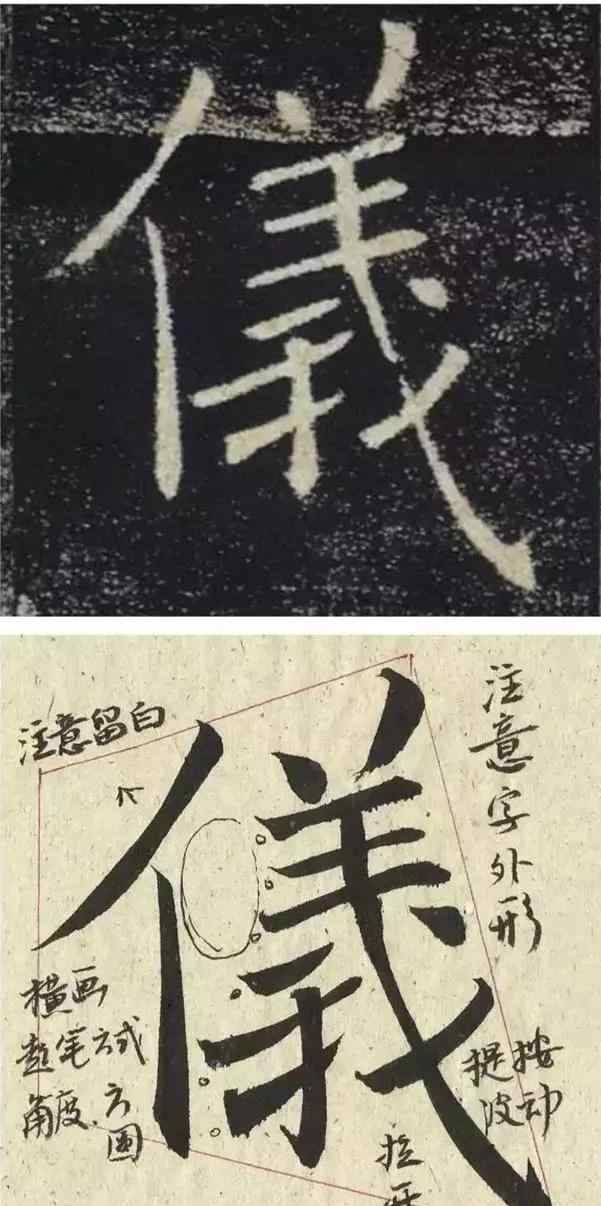 儀
注意留白
儀
注意字外形
横画
起笔方式
角度.方圆
提按
波动
拉开